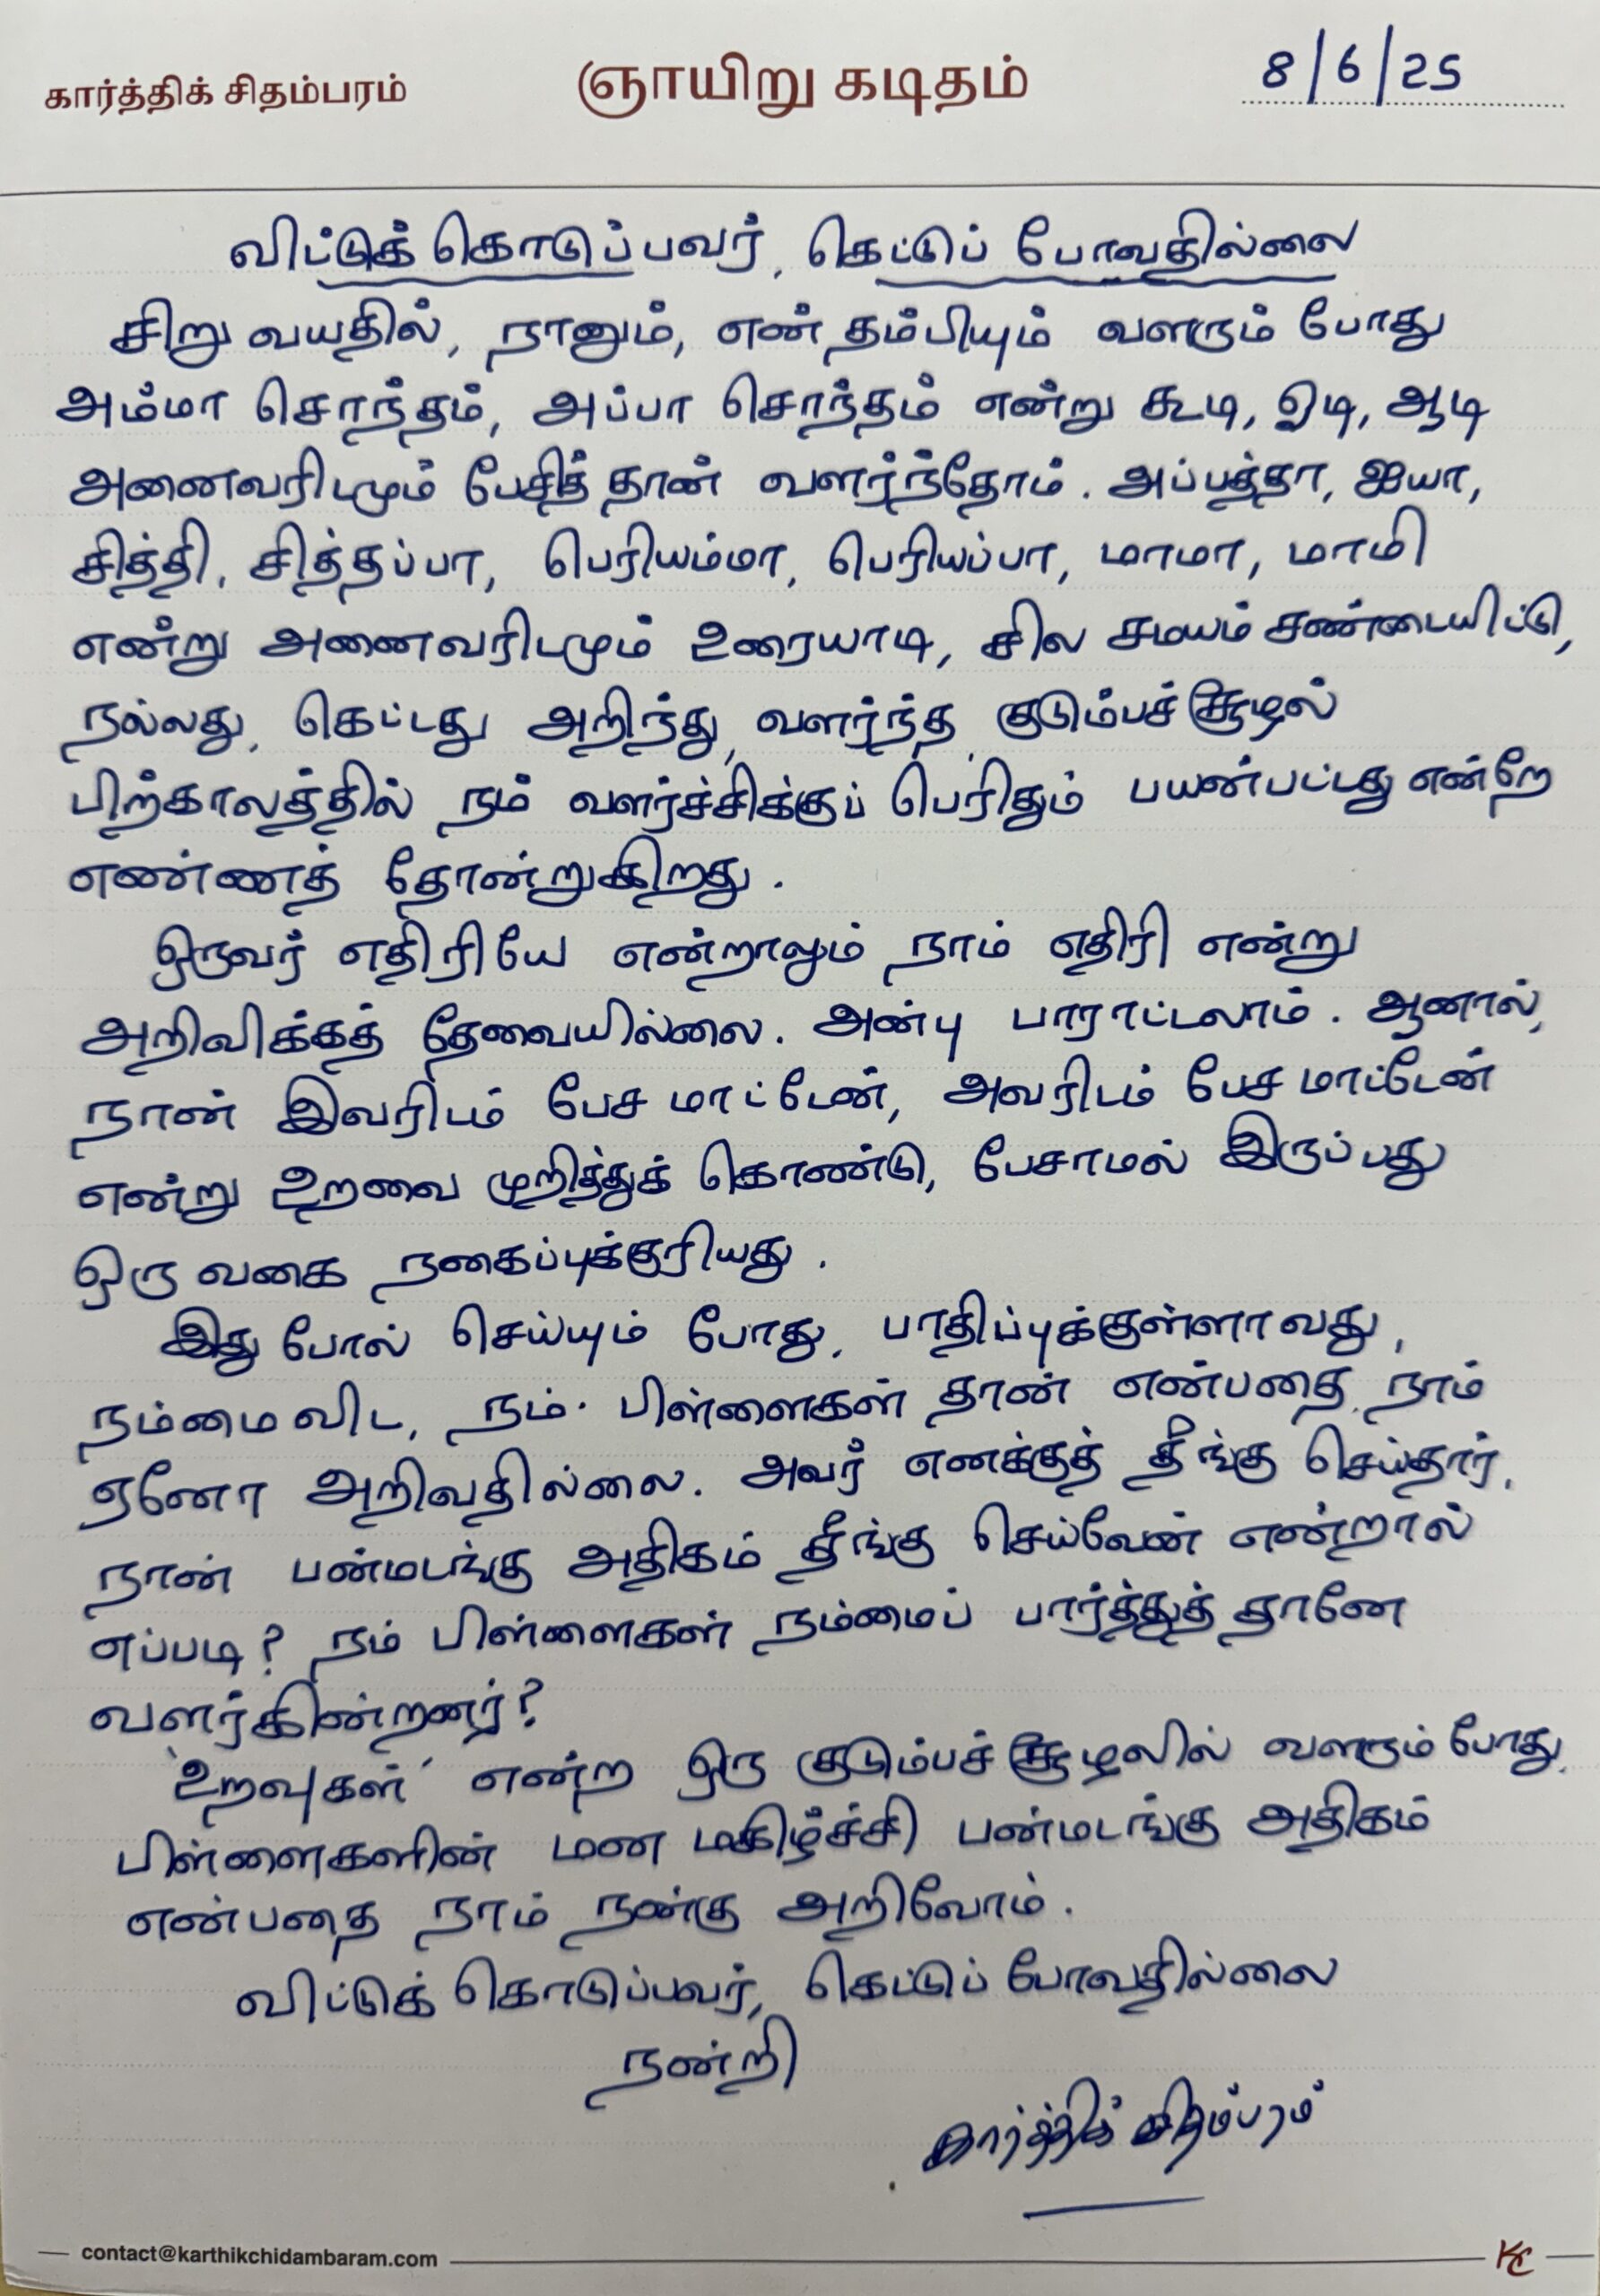 கார்த்திக் சிதம்பரம் ஞாயிறு கடிதம் 8/6/25
விட்டுக் கொடுப்பவர், கெட்டுப் போவதில்லை
சிறு வயதில், நானும், என் தம்பியும் வளரும் போது
அம்மா சொந்தம், அப்பா சொந்தம் என்று கூடி, ஓடி, ஆடி
அனைவரிடமும் பேசித் தான் வளர்ந்தோம். அப்பத்தா, ஐயா,
சித்தி, சித்தப்பா, பெரியம்மா, பெரியப்பா, மாமா, மாமி
என்று அனைவரிடமும் உரையாடி, சில சமயம் சண்டையிட்டு,
நல்லது, கெட்டது அறிந்து, வளர்ந்த குடும்பச் சூழல்
பிற்காலத்தில் நம் வளர்ச்சிக்குப் பெரிதும் பயன்பட்டது என்றே
எண்ணத் தோன்றுகிறது.
ஒருவர் எதிரியே என்றாலும் நாம் எதிரி என்று
அறிவிக்கத் தேவையில்லை. அன்பு பாராட்டலாம். ஆனால்,
நான் இவரிடம் பேச மாட்டேன், அவரிடம் பேச மாட்டேன்
என்று உறவை முறித்துக் கொண்டு, பேசாமல் இருப்பது
ஒரு வகை நகைப்புக்குரியது.
இது போல் செய்யும் போது, பாதிப்புக்குள்ளாவது,
நம்மை விட, நம் பிள்ளைகள் தான் என்பதை நாம்
ஏனோ அறிவதில்லை. அவர் எனக்குத் தீங்கு செய்தார்,
நான் பன்மடங்கு அதிகம் தீங்கு செய்வேன் என்றால்
எப்படி? நம் பிள்ளைகள் நம்மைப் பார்த்துத் தானே
வளர்கின்றனர்?
'உறவுகள்' என்ற ஒரு குடும்பச் சூழலில் வளரும் போது,
பிள்ளைகளின் மன மகிழ்ச்சி பன்மடங்கு அதிகம்
என்பதை நாம் நன்கு அறிவோம்.
விட்டுக் கொடுப்பவர், கெட்டுப் போவதில்லை
நன்றி
கார்த்திக் சிதம்பரம்
contact@karthikchidambaram.com KC